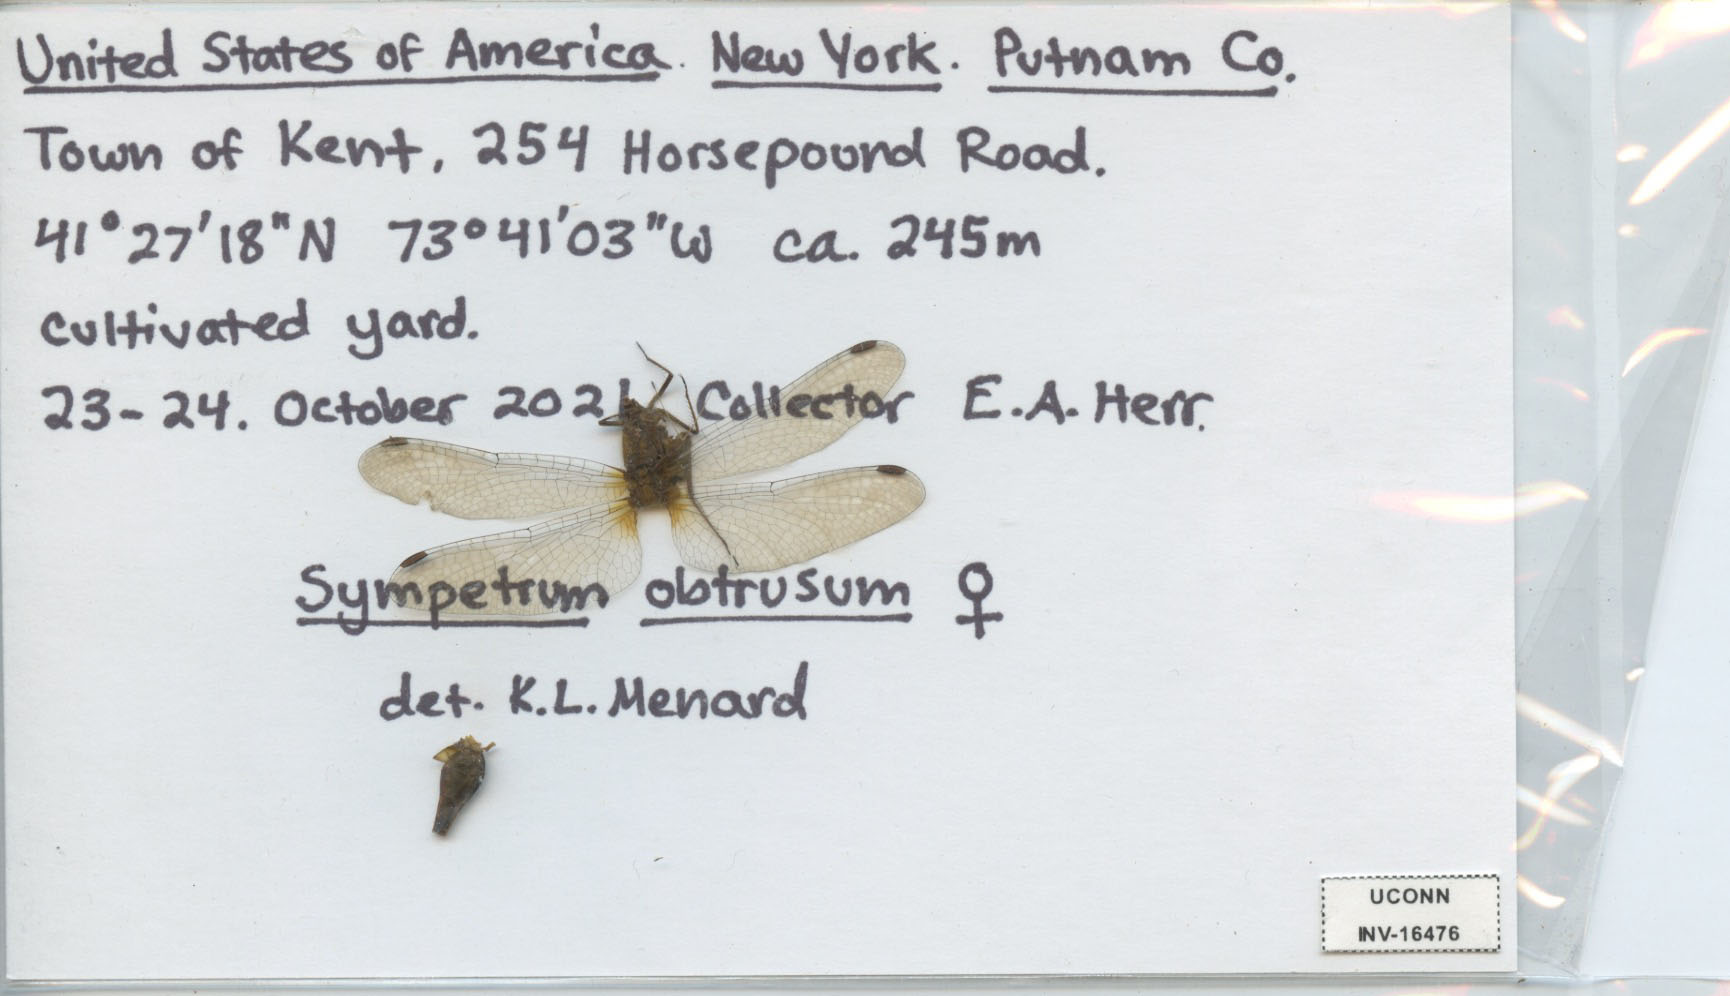 United States of America. New York. Putnam Co.
Town of Kent, 254 Horsepound Road.
41°27'18"N 73°41'03"W ca. 245m
cultivated yard.
23-24. October 2021. Collector E.A. Herr.
Sympetrum obtrusum ♀
det. K.L. Menard
UCONN
INV-16476